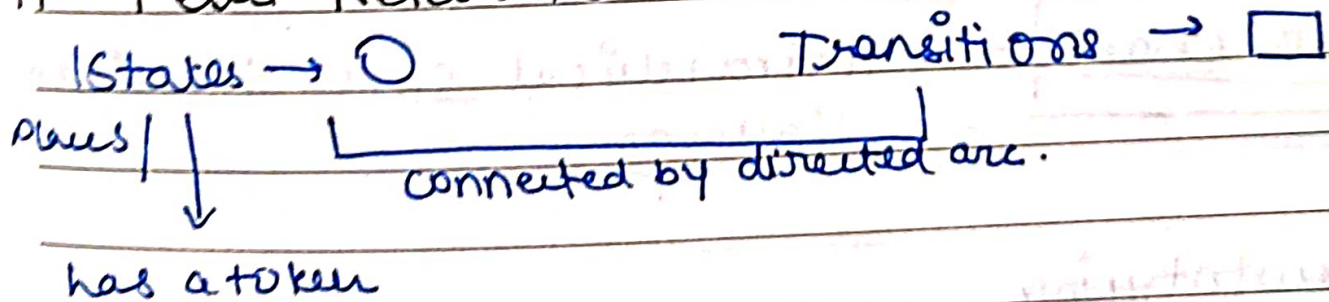 States → ○ Transitions → □
Places/
connected by directed arc.
has a token